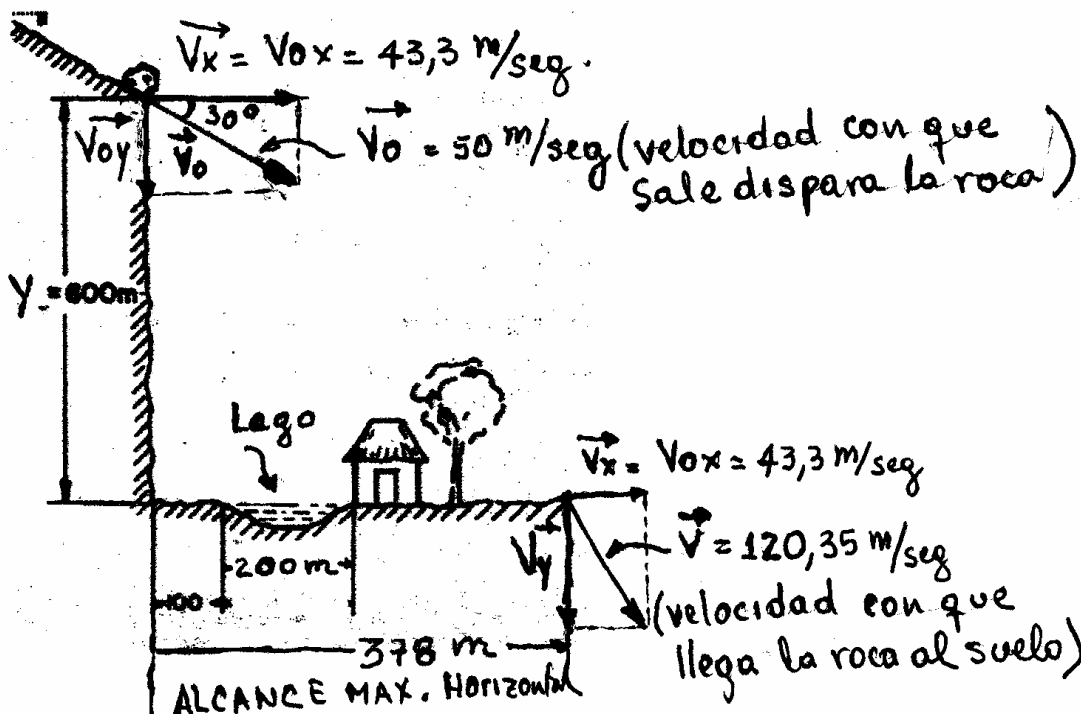 Vx = Vox = 43,3 m/seg.
30°
Voy
Vo
Vo = 50 m/seg (velocidad con que
sale dispara la roca)
Y = 600m
Lago
Vx = Vox = 43,3 m/seg
Vy
V = 120,35 m/seg
(velocidad con que
llega la roca al suelo)
200 m
100
378 m
ALCANCE MAX. Horizontal